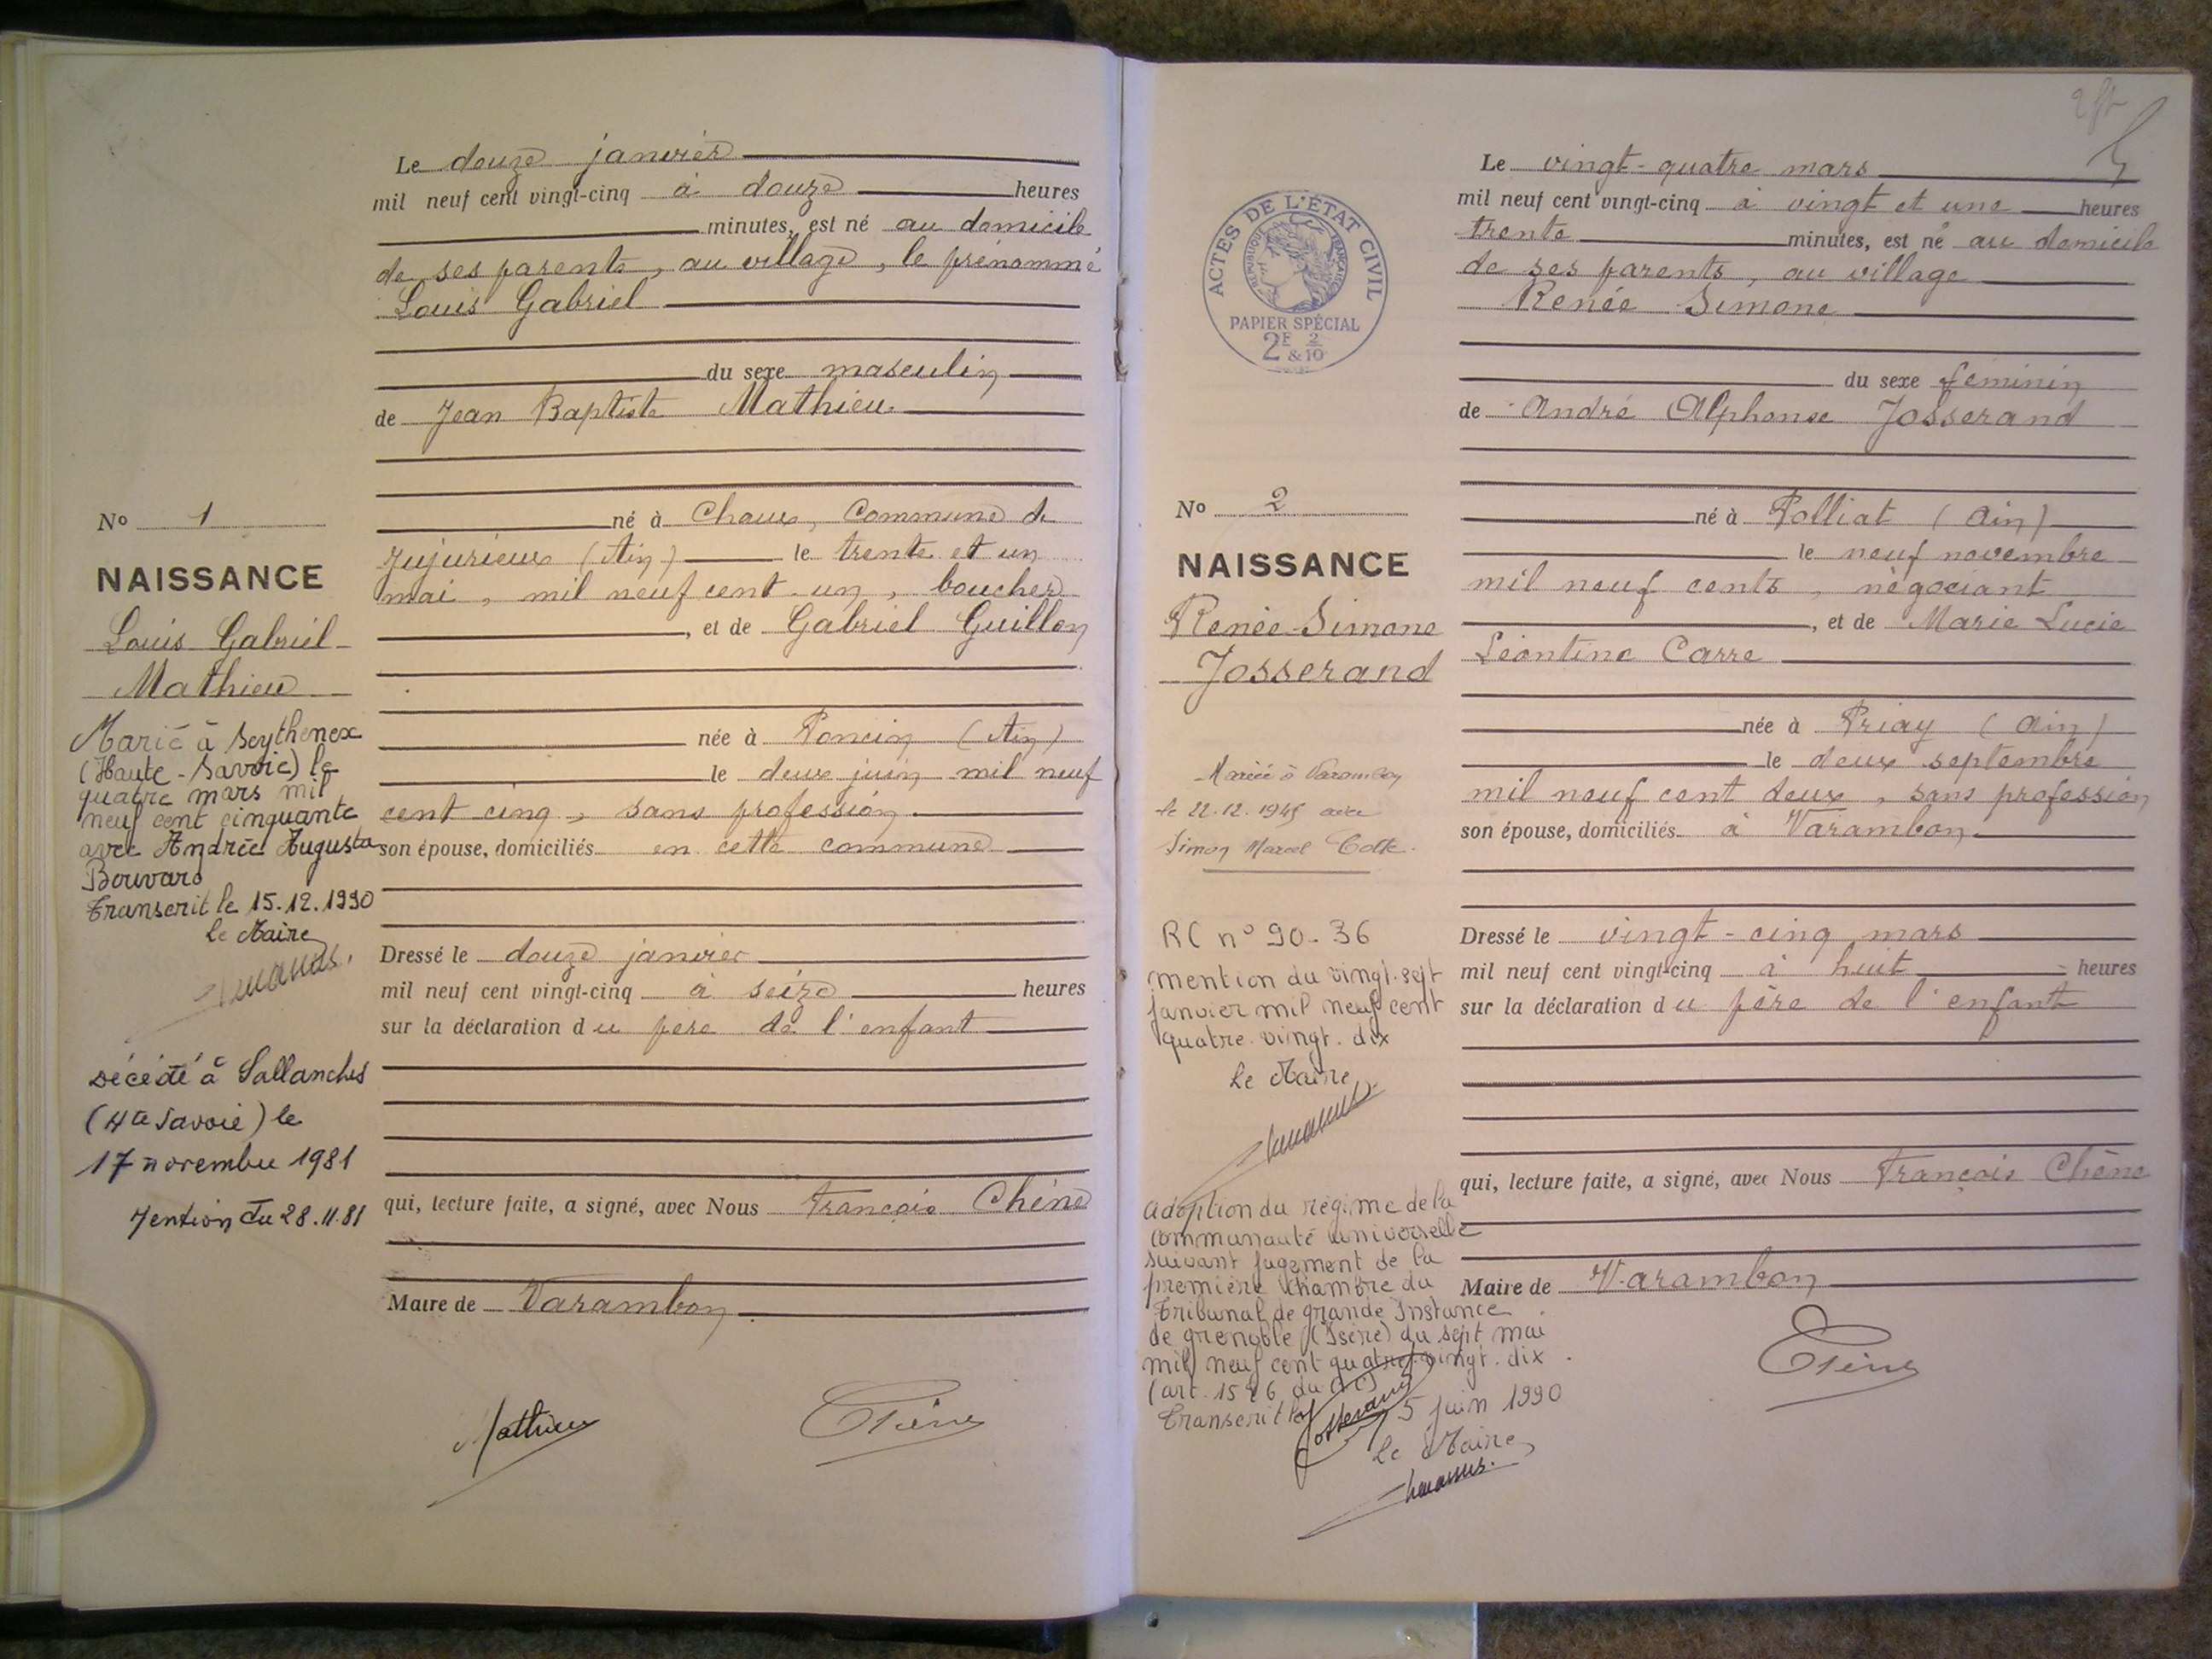 Le douze janvier
mil neuf cent vingt-cinq à douze heures
minutes, est né au domicile
de ses parents, au village, le prénommé
Louis Gabriel
du sexe masculin
de Jean Baptiste Mathieu
né à Chaux, Commune de
Jujurieux (Ain) le trente et un
mai, mil neuf cent un, boucher
, et de Gabriel Guillon
née à Poncin (Ain)
le deux juin mil neuf
cent cinq, sans profession
son épouse, domiciliés en cette commune
Dressé le douze janvier
mil neuf cent vingt-cinq à seize heures
sur la déclaration du père de l'enfant
qui, lecture faite, a signé, avec Nous François Chêne
Maire de Varambon
Mathieu
Chêne
No 1
NAISSANCE
Louis Gabriel
Mathieu
Marié à Seythenex
(Haute-Savoie) le
quatre mars mil
neuf cent cinquante
avec Andrée Augusta
Bouvard
Transcrit le 15.12.1990
le Maire
Décédé à Sallanches
(Hte Savoie) le
17 novembre 1981
Mention du 28.11.81
ACTES DE L'ÉTAT CIVIL
RÉPUBLIQUE FRANÇAISE
PAPIER SPÉCIAL
2F 2
& 10
No 2
NAISSANCE
Renée Simone
Josserand
Mariée à Varambon
le 22.12.1945 avec
Simon Marcel
RC n° 90-36
mention du vingt-sept
janvier mil neuf cent
quatre-vingt-dix
le Maire
adoption du régime de la
communauté universelle
suivant jugement de la
première chambre du
Tribunal de grande Instance
de grenoble (Isère) du sept mai
mil neuf cent quatre-vingt-dix
(art. 1526 du CC)
Transcrit le 15 juin 1990
le Maire
Le vingt-quatre mars
mil neuf cent vingt-cinq à vingt et une heures
trente minutes, est né au domicile
de ses parents, au village
Renée Simone
du sexe feminin
de André Alphonse Josserand
né à Polliat (Ain)
le neuf novembre
mil neuf cents, négociant
, et de Marie Lucie
Léontine Carre
née à Priay (Ain)
le deux septembre
mil neuf cent deux, sans profession
son épouse, domiciliés à Varambon
Dressé le vingt-cinq mars
mil neuf cent vingt-cinq à huit heures
sur la déclaration du père de l'enfant
qui, lecture faite, a signé, avec Nous François Chêne
Maire de Varambon
Josserand
Chêne